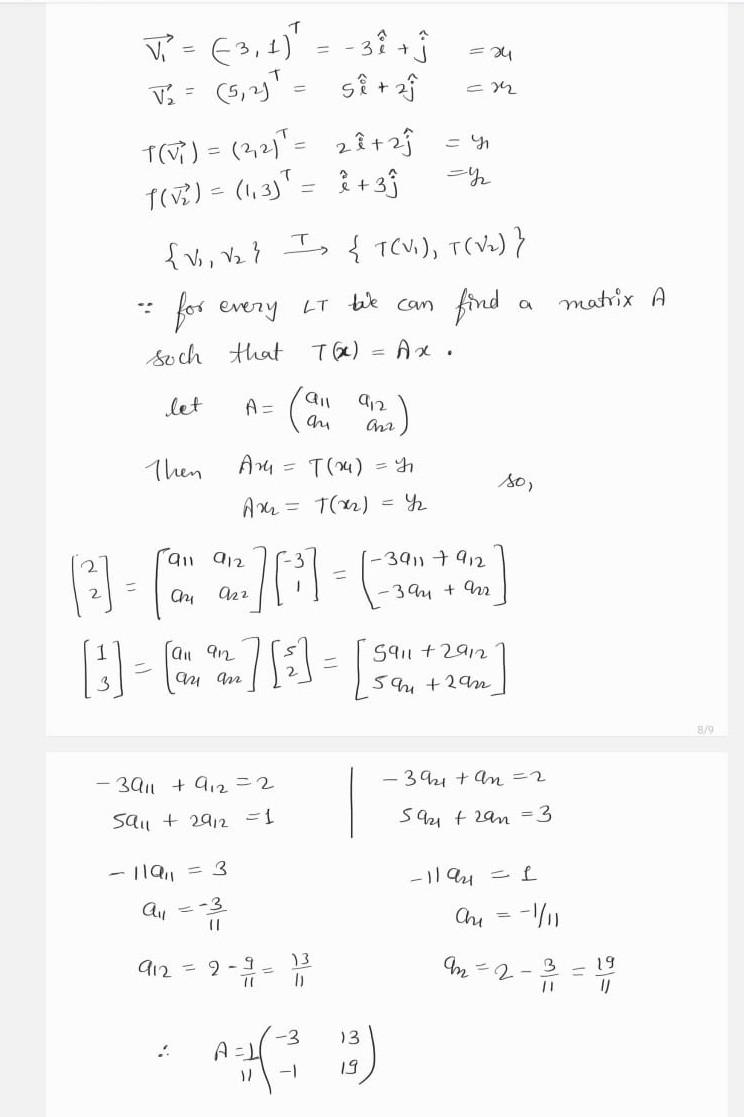 V⃗₁ = (-3, 1)ᵀ = -3î + ĵ = x₁
V⃗₂ = (5, 2)ᵀ = 5î + 2ĵ = x₂
T(V⃗₁) = (2,2)ᵀ = 2î + 2ĵ = y₁
T(V⃗₂) = (1,3)ᵀ = î + 3ĵ = y₂
{V₁, V₂} T→ { T(V₁), T(V₂) }
∵ for every LT we can find a matrix A
such that T(x) = Ax .
let A = (a₁₁ a₁₂ ; a₂₁ a₂₂)
Then Ax₁ = T(x₁) = y₁
Ax₂ = T(x₂) = y₂ so,
[2 ; 2] = [a₁₁ a₁₂ ; a₂₁ a₂₂] [-3 ; 1] = [-3a₁₁ + a₁₂ ; -3a₂₁ + a₂₂]
[1 ; 3] = [a₁₁ a₁₂ ; a₂₁ a₂₂] [5 ; 2] = [5a₁₁ + 2a₁₂ ; 5a₂₁ + 2a₂₂]
8/9
-3a₁₁ + a₁₂ = 2 | -3a₂₁ + a₂₂ = 2
5a₁₁ + 2a₁₂ = 1 | 5a₂₁ + 2a₂₂ = 3
-11a₁₁ = 3 -11a₂₁ = 1
a₁₁ = -3/11 a₂₁ = -1/11
a₁₂ = 2 - 9/11 = 13/11 a₂₂ = 2 - 3/11 = 19/11
∴ A = 1/11 (-3 13 ; -1 19)